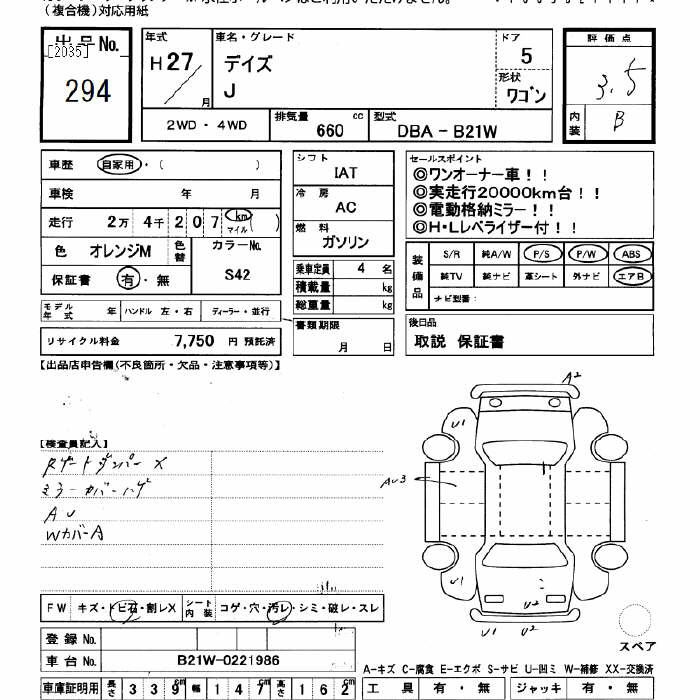 (複合機)対応用紙
出品No.
[2035]
294
年式
H27
月
車名・グレード
デイズ
J
ドア
5
形状
ワゴン
評価点
3.5
内装
B
2WD・4WD
排気量
660 cc
型式
DBA - B21W
車歴 自家用・( )
車検 年 月
走行 2万 4千 2 0 7 km マイル
色 オレンジM
色替
カラーNo.
S42
保証書 有・無
モデル年式 年
ハンドル 左・右
ディーラー・並行
リサイクル料金 7,750 円 預託済
シフト
IAT
冷房
AC
燃料
ガソリン
乗車定員 4 名
積載量 kg
総重量 kg
書類期限
月 日
セールスポイント
◎ワンオーナー車!!
◎実走行20000km台!!
◎電動格納ミラー!!
◎H・Lレベライザー付!!
装備品
S/R 純A/W P/S P/W ABS
純TV 純ナビ 革シート 外ナビ エアB
ナビ型番:
後日品
取説 保証書
【出品店申告欄(不良箇所・欠品・注意事項等)】
【検査員記入】
Rゲートダンパー X
ミラーカバーハゲ
AU
WカバーA
A2
U1
U1
AU3
U1
U1
U2
U1
U2
スペア
FW キズ・トビ石・割レX
シート内装 コゲ・穴・汚レ・シミ・破レ・スレ
登録No.
車台No. B21W-0221986
A-キズ C-腐食 E-エクボ S-サビ U-凹ミ W-補修 XX-交換済
車庫証明用 長さ 3 3 9 cm 幅 1 4 7 cm 高さ 1 6 2 cm
工具 有・無 ジャッキ 有・無